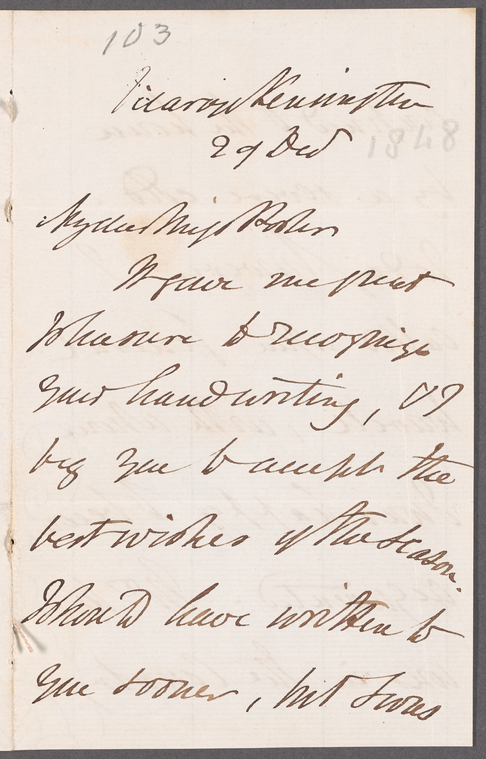 103
Vicarage Kensington
29 Dec
1848
My dear Miss
It gave me great
pleasure to recognize
your handwriting, & I
beg you to accept the
best wishes of the season.
I should have written to
you sooner, but I was